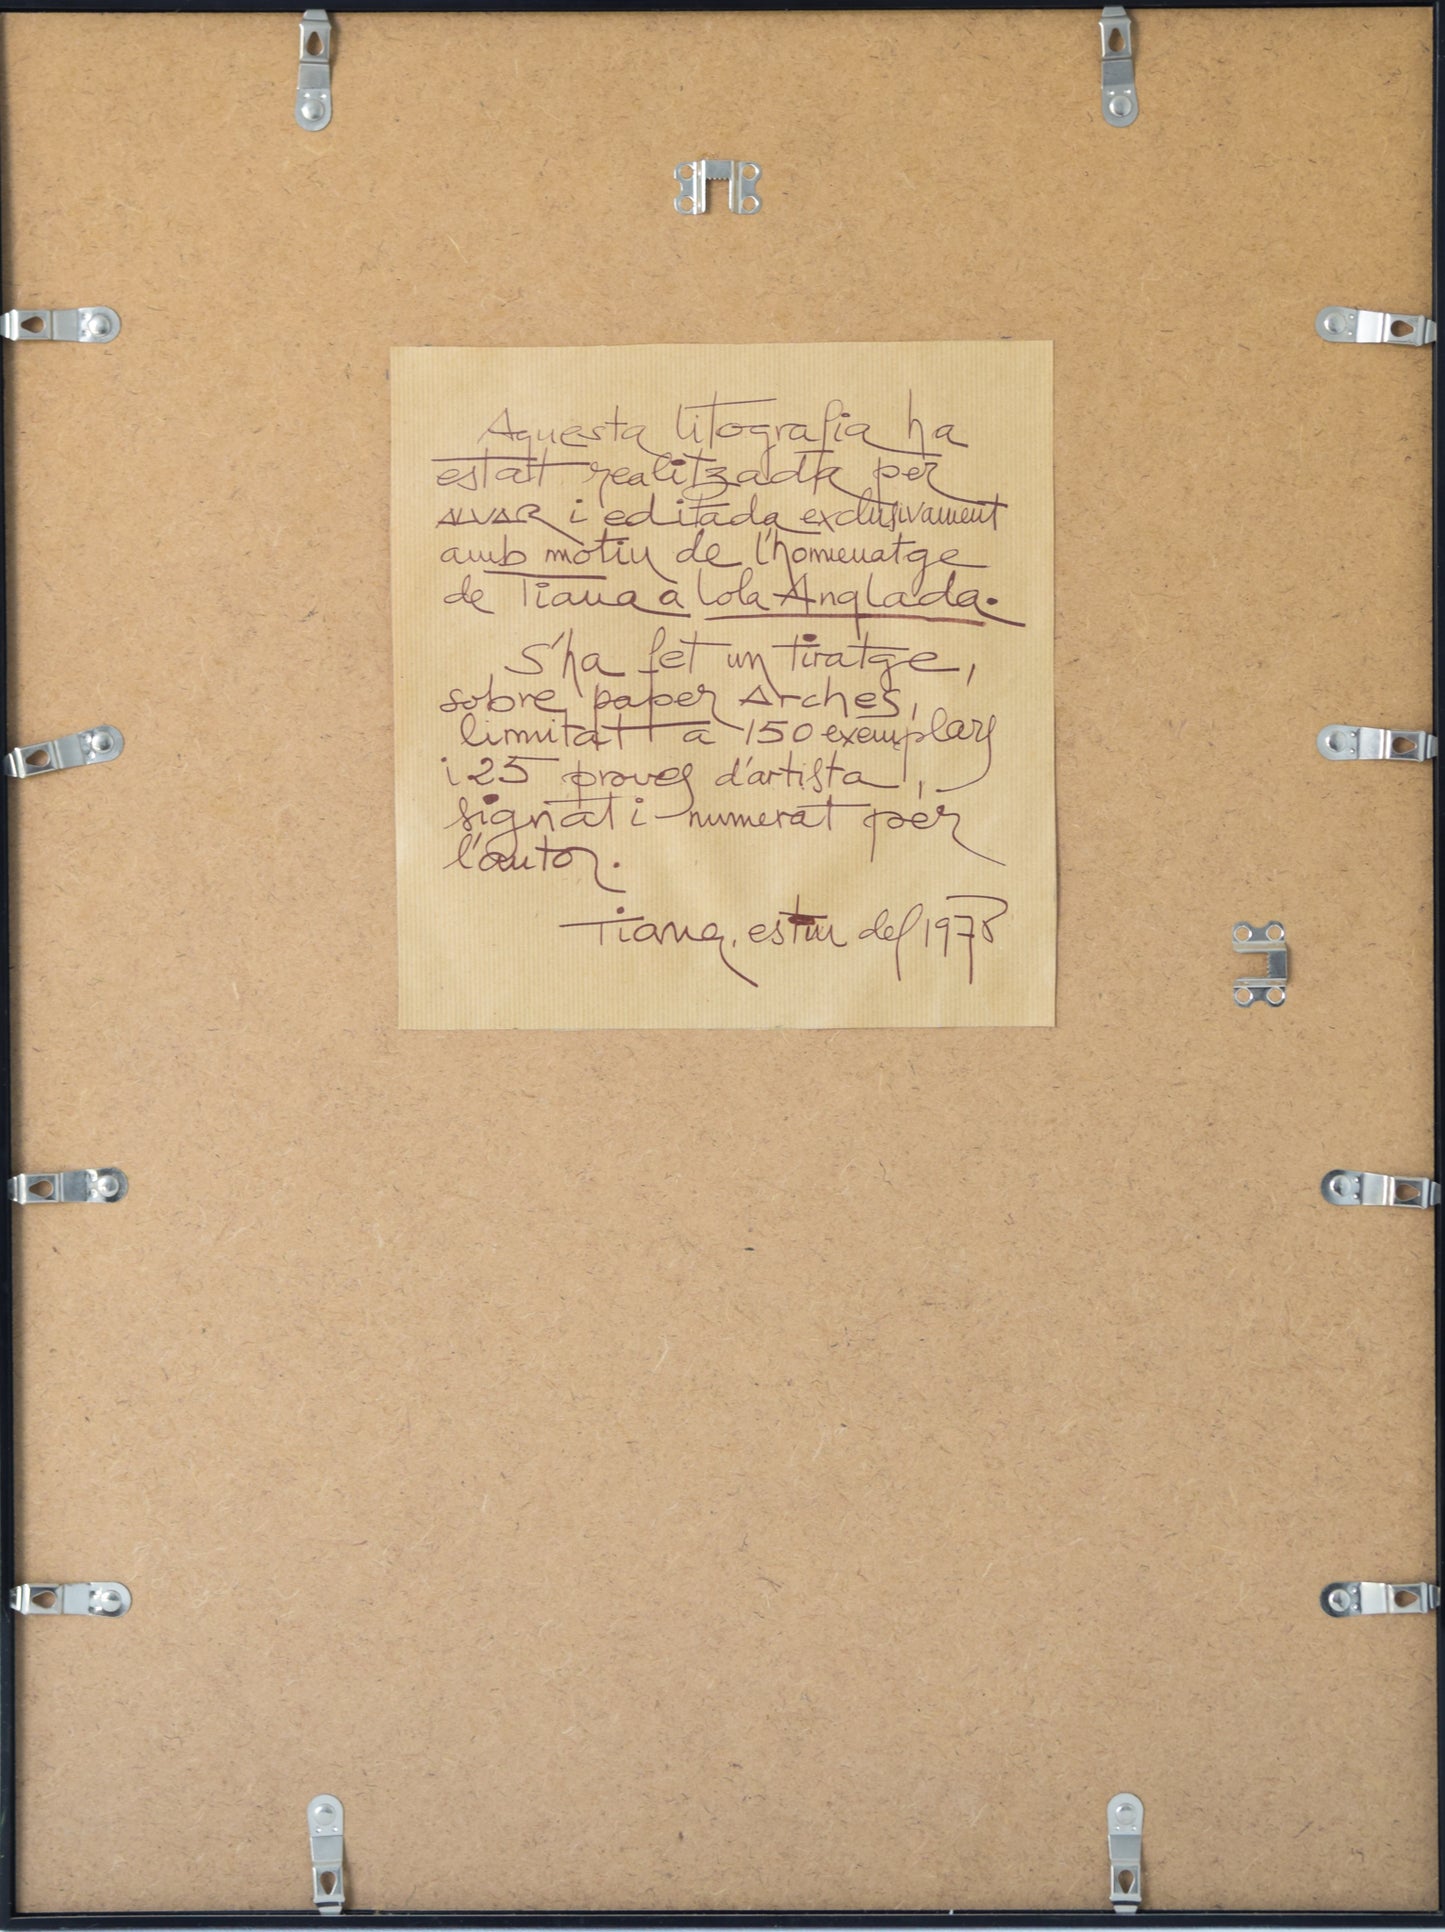 Aquesta litografia ha
estat realitzada per
ALVAR i editada exclusivament
amb motiu de l'homenatge
de Tiana a Lola Anglada.
S'ha fet un tiratge,
sobre paper Arches,
limitat a 150 exemplars
i 25 proves d'artista,
signat i numerat per
l'autor.
Tiana, estiu del 1978